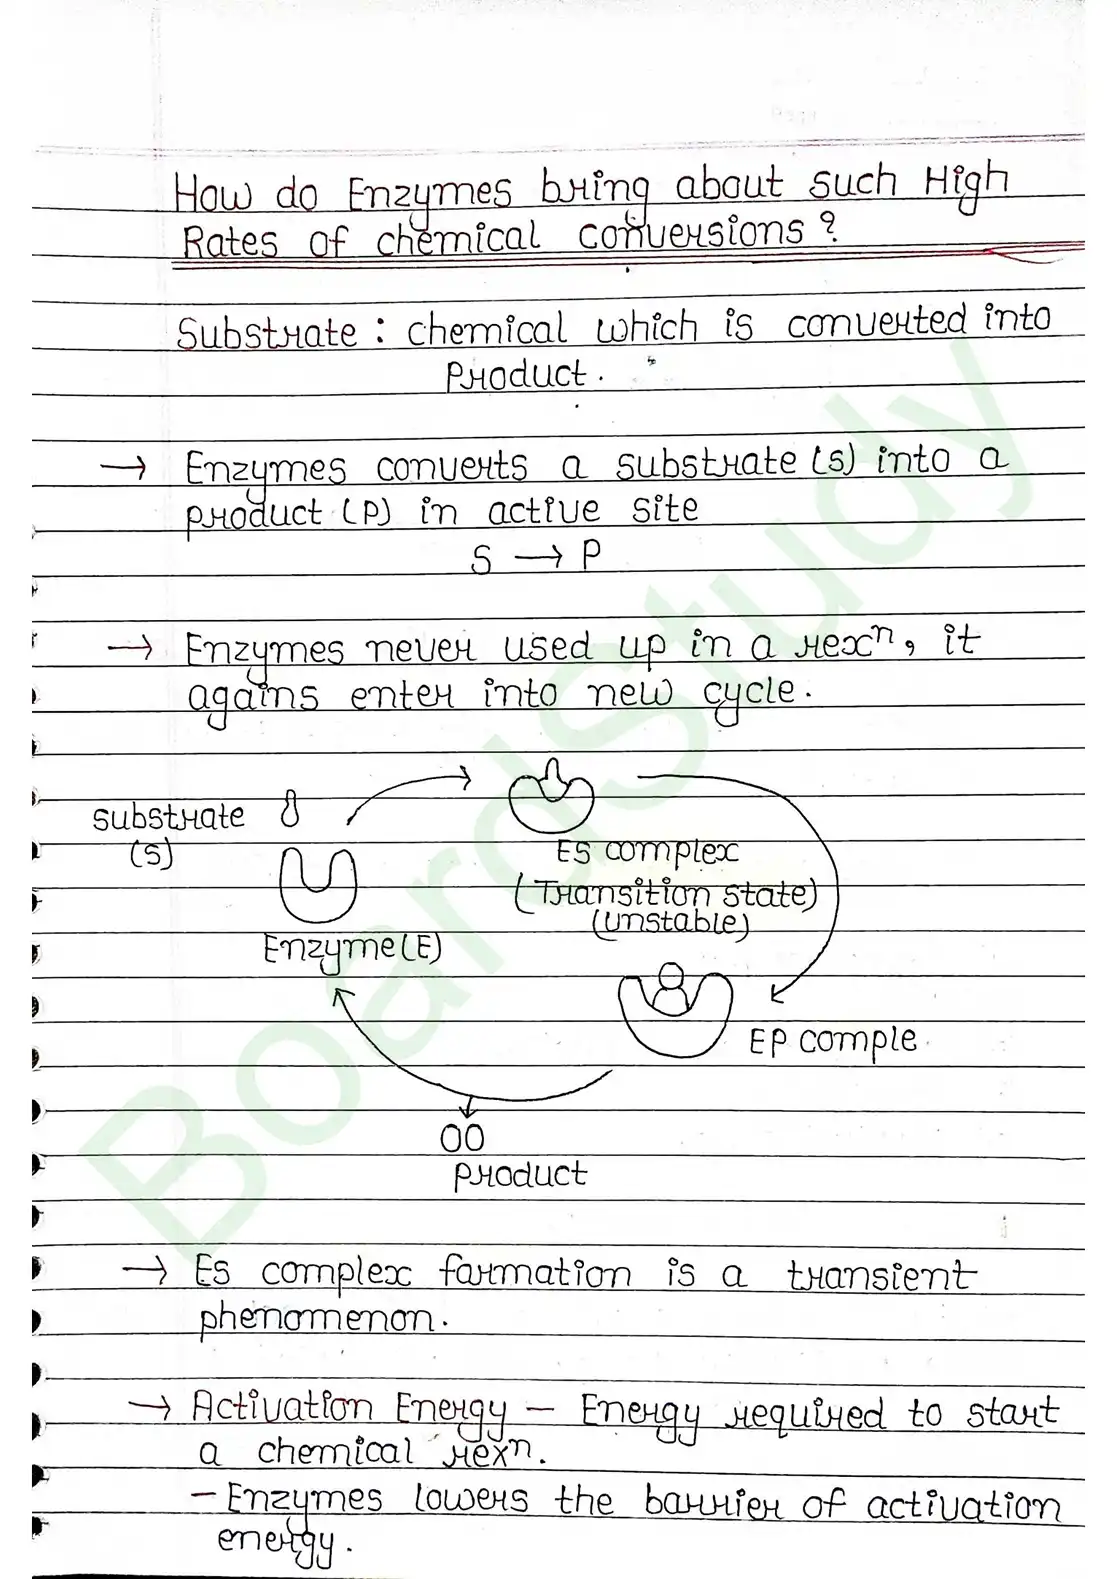 How do Enzymes bring about such High
Rates of chemical conversions ?
Substrate : chemical which is converted into
Product .
→ Enzymes converts a substrate (s) into a
product (P) in active site
S → P
→ Enzymes never used up in a rexⁿ, it
agains enter into new cycle.
substrate
(S)
ES complex
(Transition state)
(unstable)
Enzyme (E)
EP comple
product
→ Es complex formation is a transient
phenomenon.
→ Activation Energy – Energy required to start
a chemical rexⁿ.
– Enzymes lowers the barrier of activation
energy.
BoardStudy